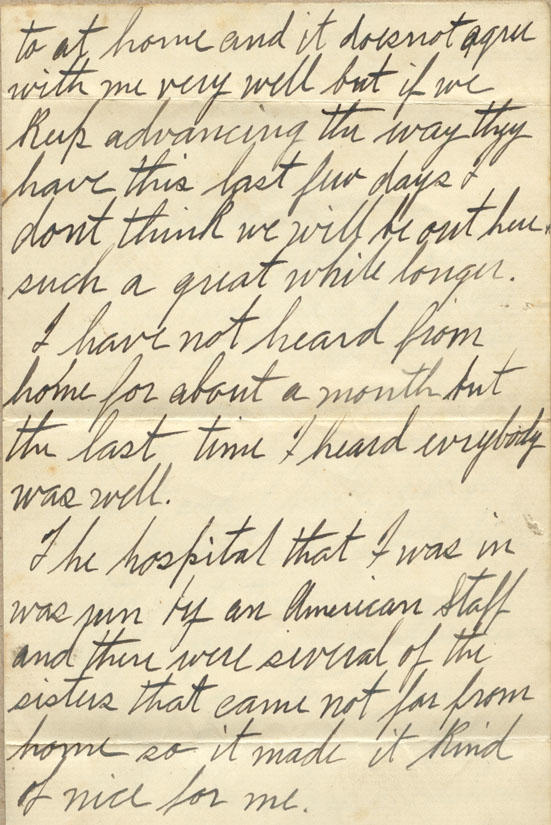 to at home and it does not agree
with me very well but if we
keep advancing the way they
have this last few days I
dont think we will be out here
such a great while longer.
I have not heard from
home for about a month but
the last time I heard everybody
was well.
The hospital that I was in
was run by an American Staff
and there were several of the
sisters that came not far from
home so it made it kind
of nice for me.